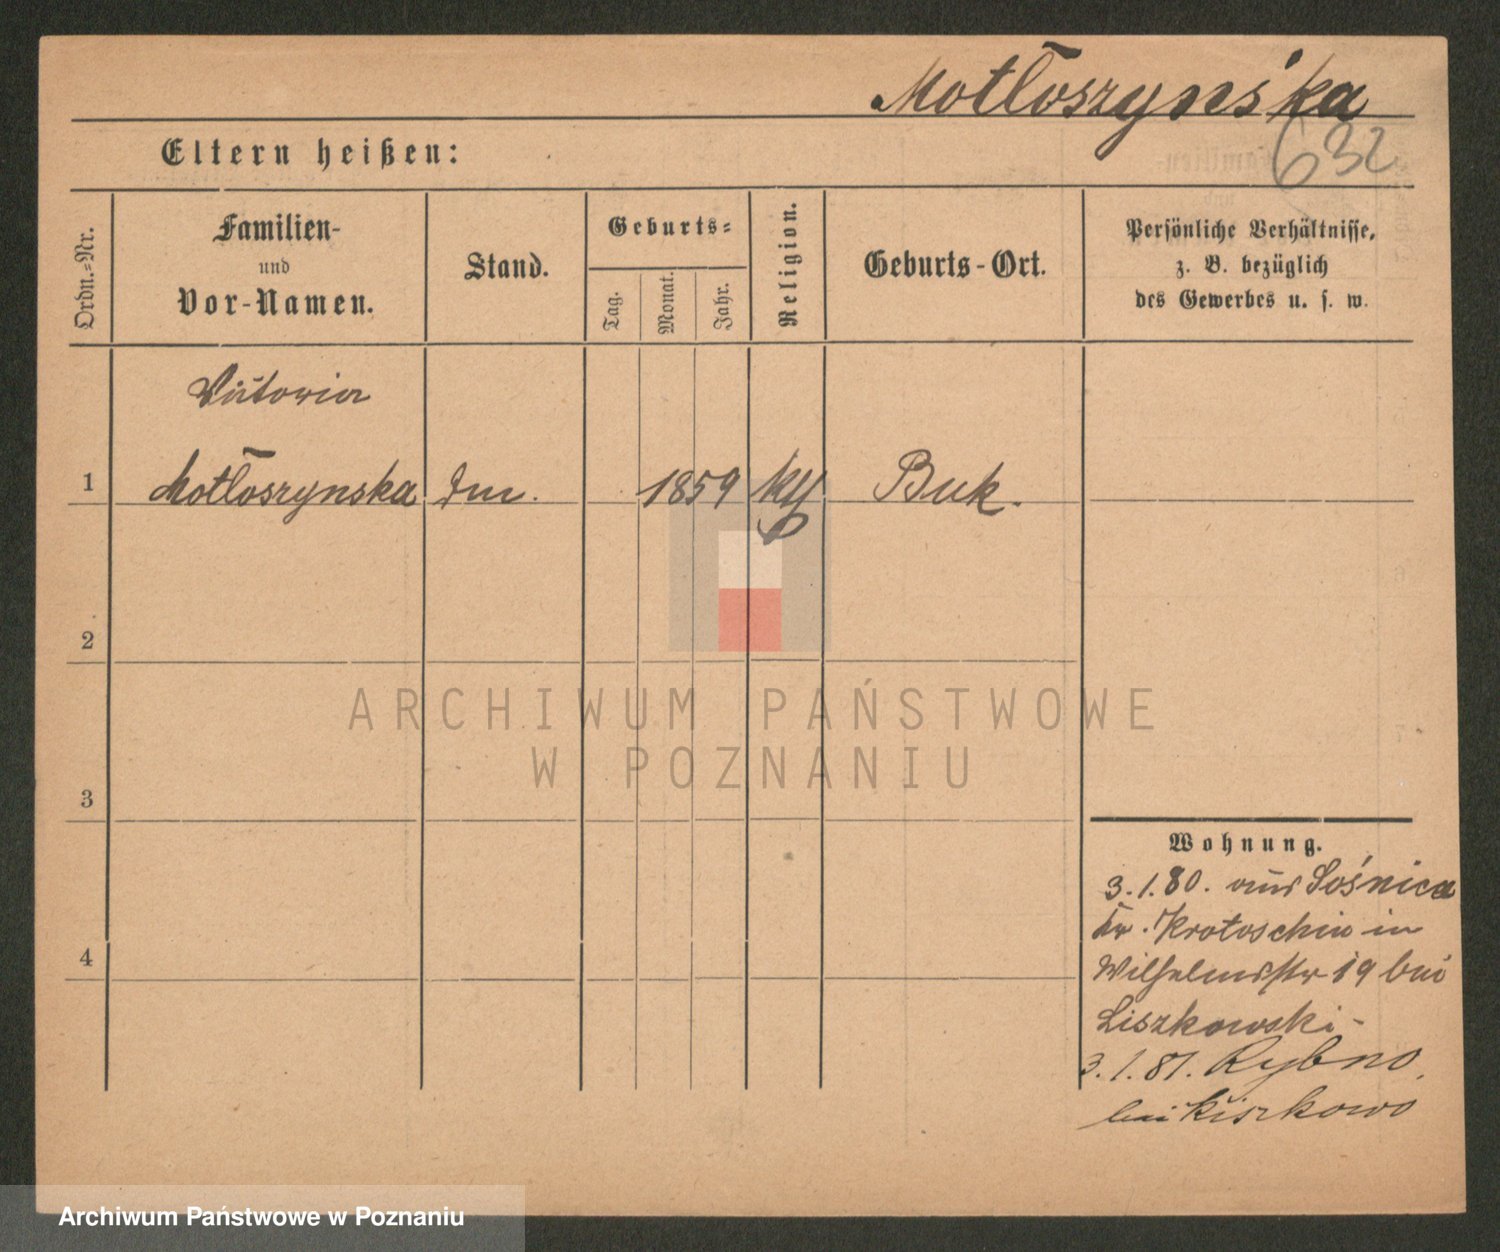 Motłoszyńska
632
Eltern heißen:
Ordn.-Nr.
Familien-
und
Vor-Namen.
Stand.
Geburts-
Tag.
Monat.
Jahr.
Religion.
Geburts-Ort.
Persönliche Verhältnisse,
z. B. bezüglich
des Gewerbes u. s. w.
Victoria
1 Motłoszynska 1859 Buk.
2
3
4
Wohnung.
3.1.80. aus Sośnica
Kr. Krotoschin in
Wilhelmsstr 19 bei
Liszkowski-
3.1.81. Rybno
bei Kiszkowo
ARCHIWUM PAŃSTWOWE
W POZNANIU
Archiwum Państwowe w Poznaniu